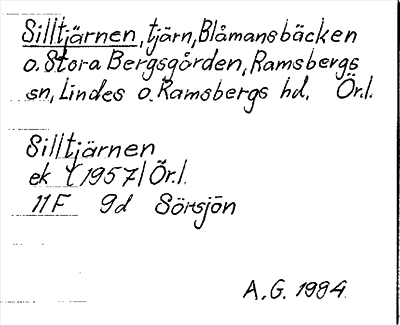 Silltjärnen, tjärn, Blåmansbäcken
o. Stora Bergsgården, Ramsbergs
sn, Lindes o. Ramsbergs hd, Ör.l.
Silltjärnen
ek (1957) Ör.l.
11F 9d Sörsjön
A.G. 1984